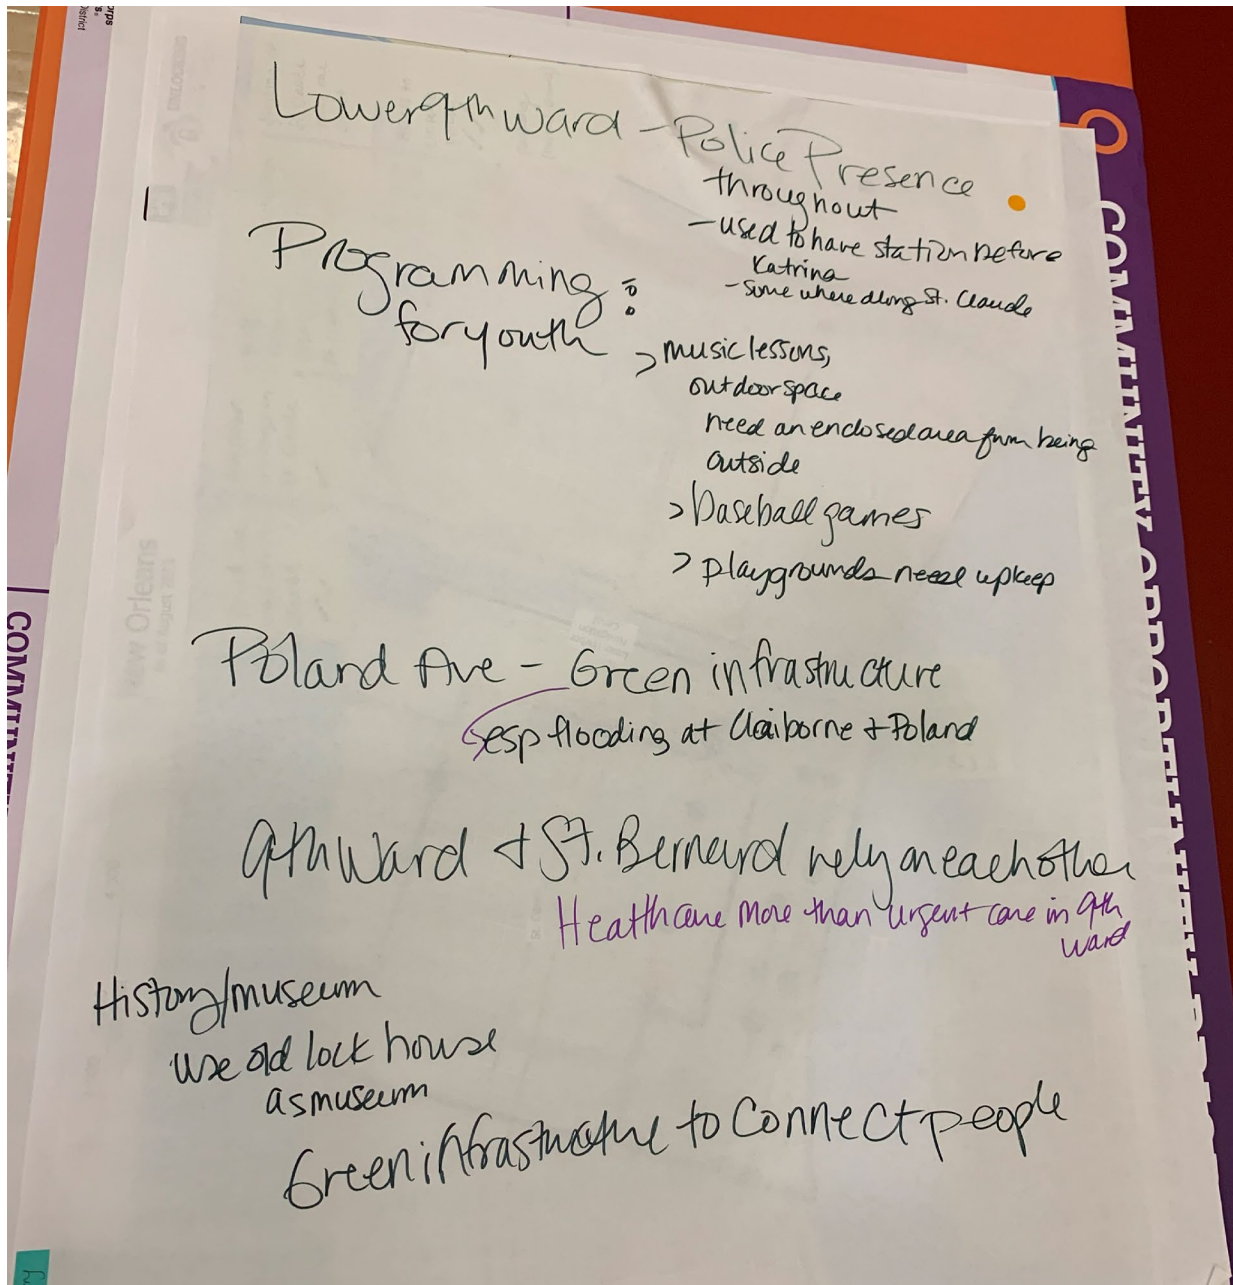 orps
s®
District
Lower 9th ward - Police Presence
throughout
- used to have station before
Katrina
- some where along St. Claude
Programming:
for youth
> music lessons,
outdoor space
need an enclosed area from being
outside
> baseball games
> playgrounds need upkeep
Poland Ave - Green infrastructure
esp flooding at Claiborne + Poland
9th Ward + St. Bernard rely on each other
Healthcare more than urgent care in 9th
ward
History/museum
use old lock house
as museum
Green infrastructure to connect people
COMMUNITY OPPORTUNITY
COMMUNIT
New Orleans